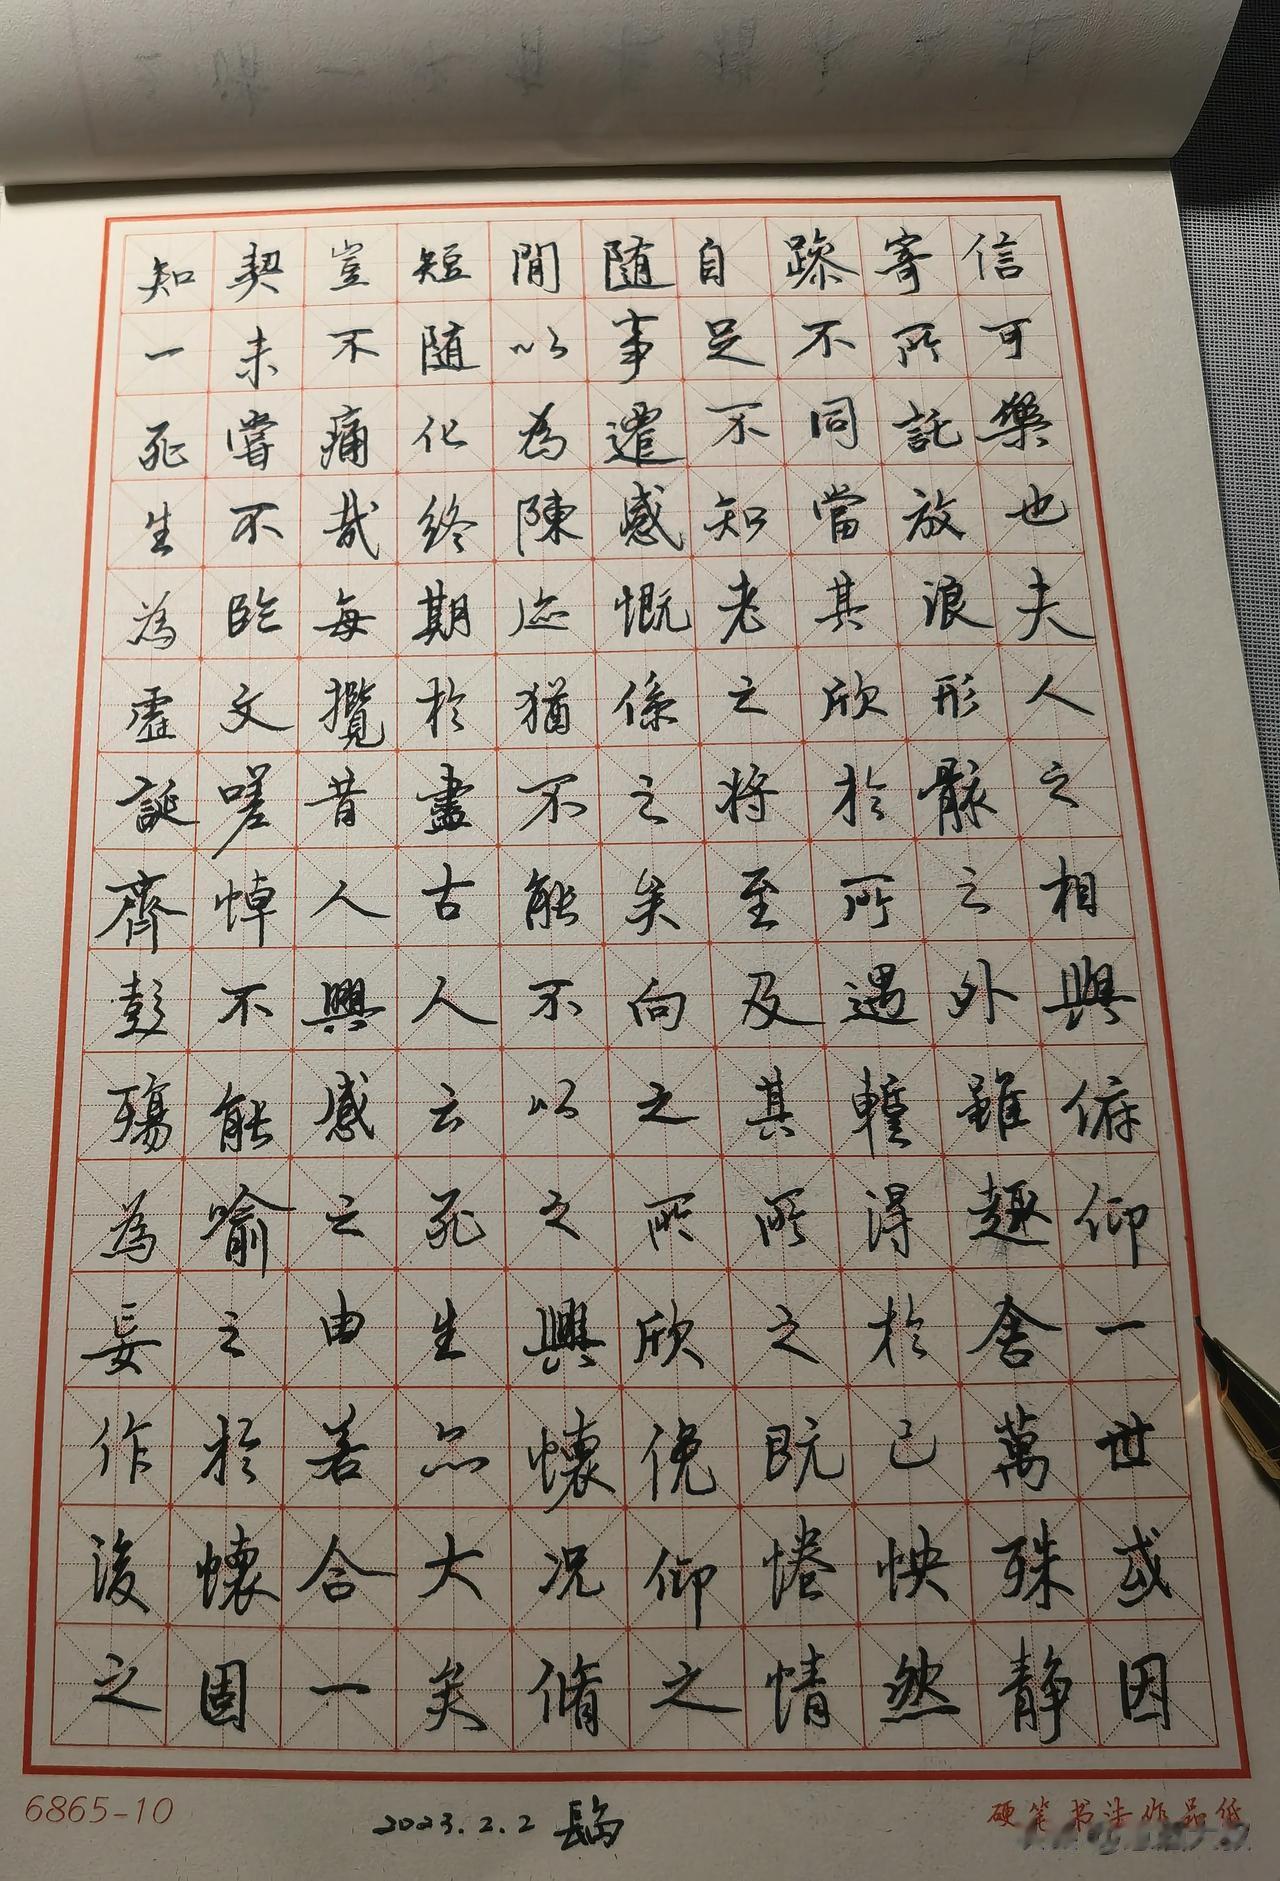 信可樂也夫人之相與俯仰一世或因
寄所託放浪形骸之外雖趣舍萬殊静
躁不同當其欣於所遇蹔得於己怏然
自足不知老之將至及其所之既惓情
随事遷感慨係之矣向之所欣俛仰之
間以為陳迹猶不能不以之興懷况脩
短随化終期於盡古人云死生亦大矣
豈不痛哉每攬昔人興感之由若合一
契未嘗不臨文嗟悼不能喻之於懷固
知一死生為虛誕齊彭殤為妄作後之
6865-10
2023.2.2
硬笔书法作品纸